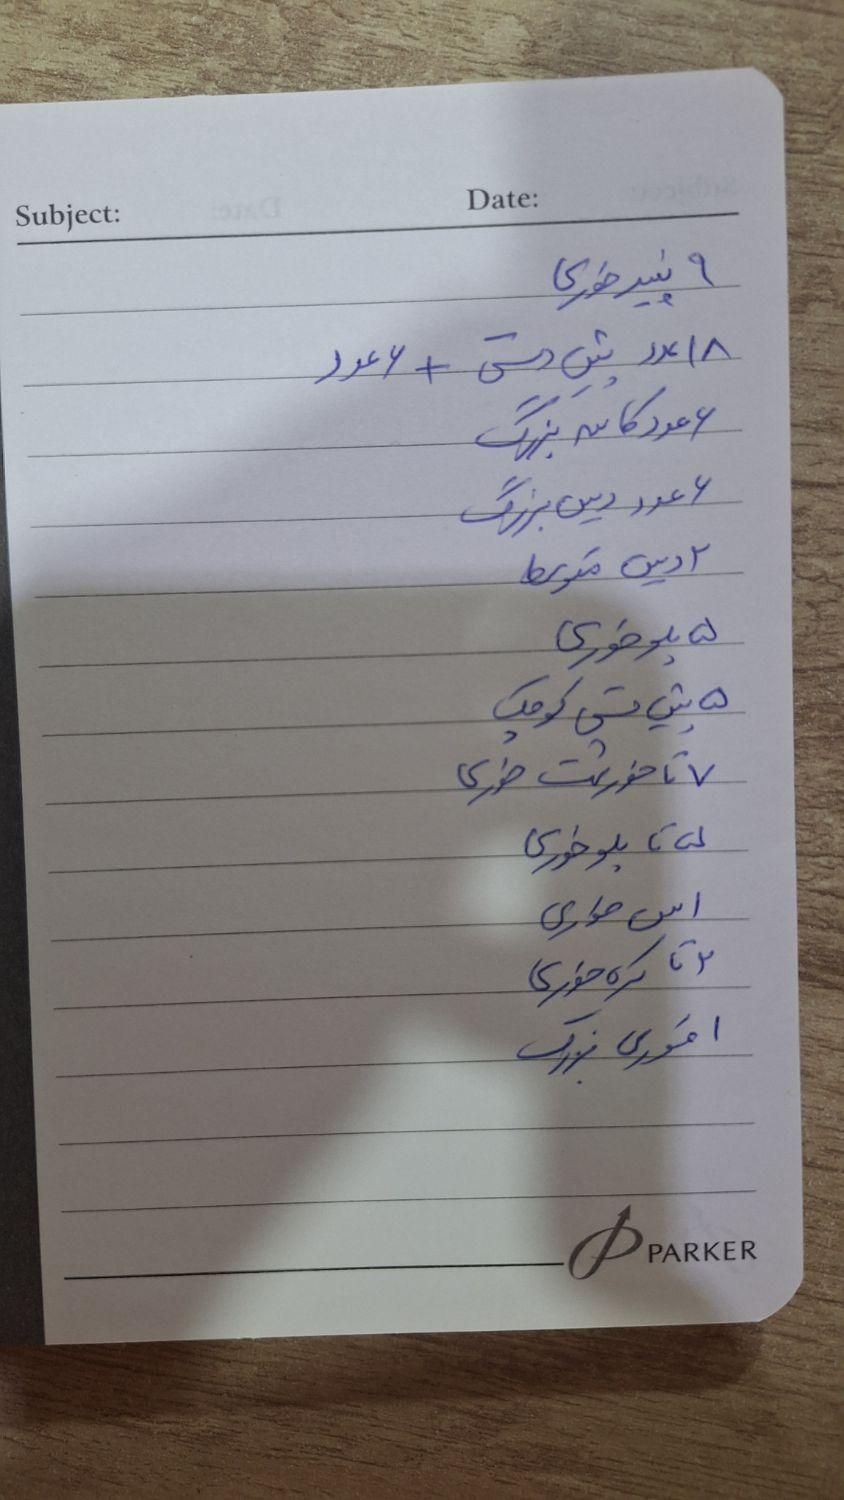 Subject: Date:
۹ پنیر خوری
۱۸ عدد پیش دستی + ۶ عدد
۶ عدد کاسه بزرگ
۶ عدد دیس بزرگ
۲ دیس متوسط
۵ پلو خوری
۵ پیش دستی کوچک
۷ تا خورشت خوری
۵ تا پلو خوری
۱ خوری
۲ تا کره خوری
۱ قوری بزرگ
PARKER